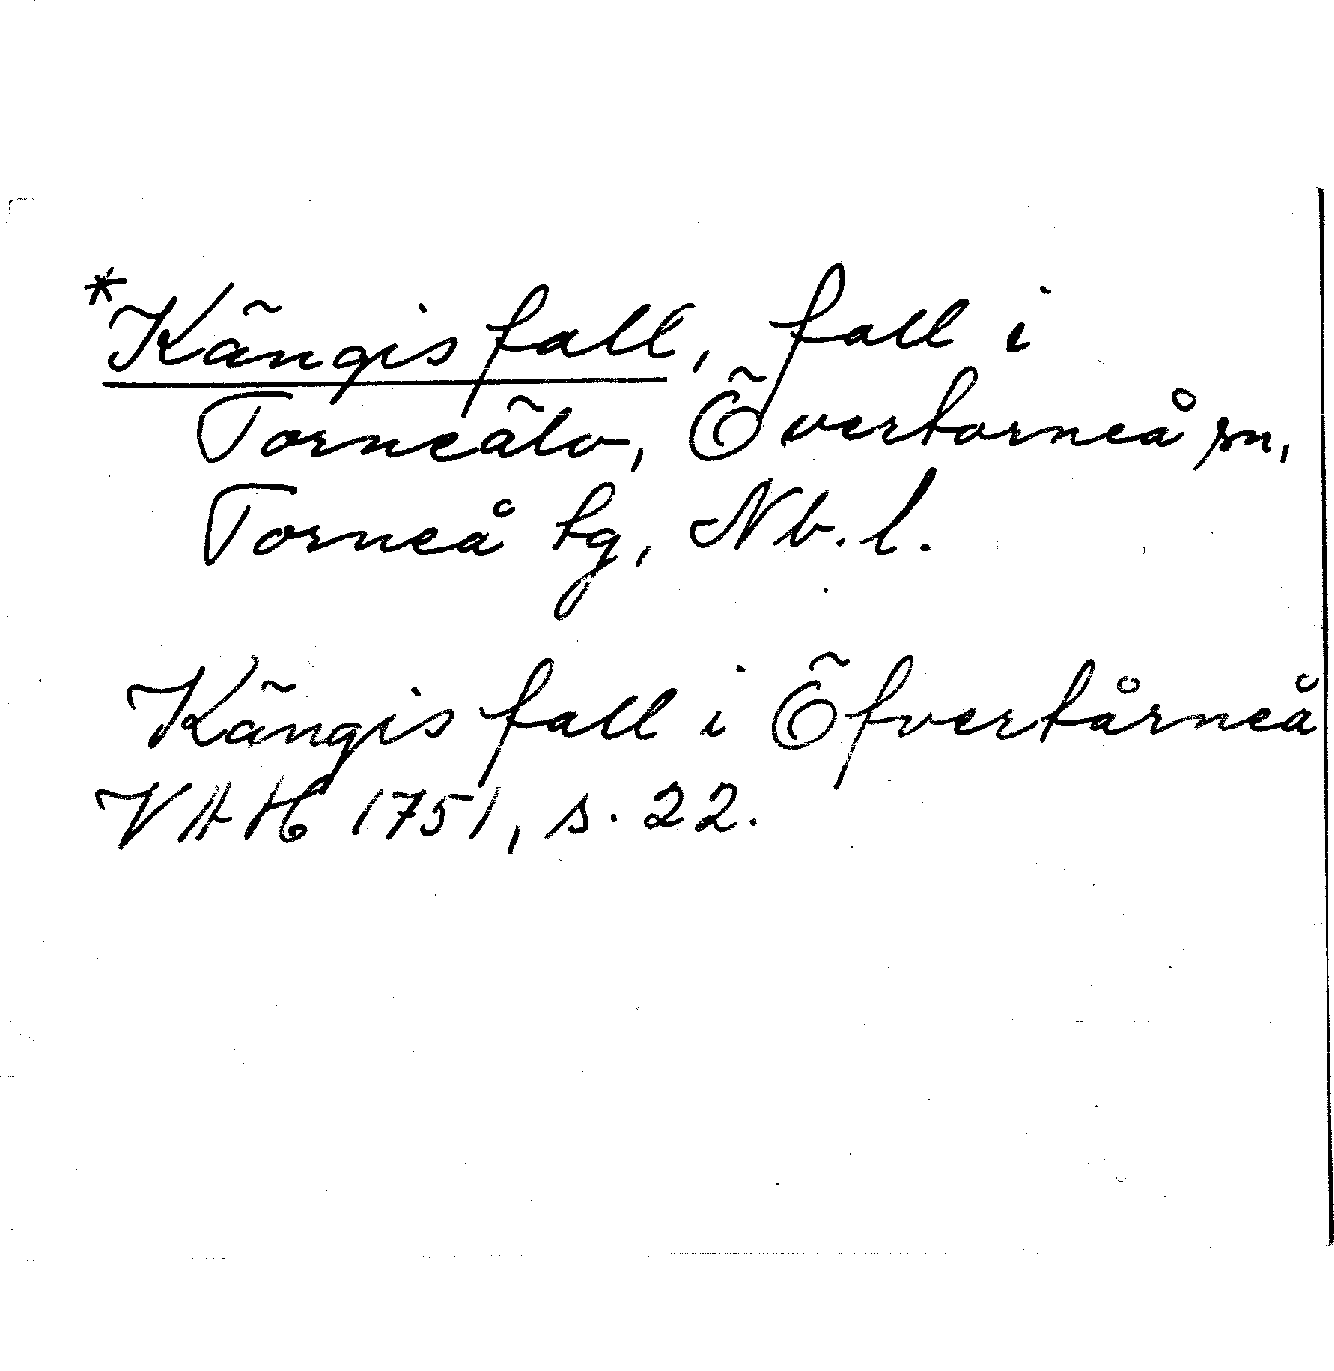 *Kängis fall, fall i
Torneälv, Övertorneå sn,
Torneå tg, Nb. l.
Kängis fall i Öfvertårneå
VAH 1751, s. 22.